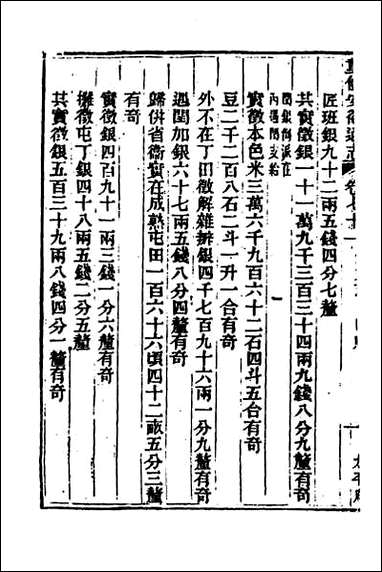 重修安徽通志 卷七十
匠班銀九十二兩五錢四分七釐
其實徵銀一十一萬九千三百三十四兩九錢八分九釐有奇
閏銀備派在
內遇閏支給
實徵本色米三萬六千九百六十二石四斗五合有奇
豆二千二百八石二斗一升一合有奇
外不在丁田徵解雜辦銀四千七百九十六兩一分九釐有奇
遇閏加銀六十七兩五錢八分四釐有奇
歸併省衛實在成熟屯田一百六十六頃四十二畝五分三釐
有奇
實徵銀四百九十一兩三錢一分六釐有奇
攤徵屯丁銀四十八兩五錢二分五釐
其實徵銀五百三十九兩八錢四分一釐有奇